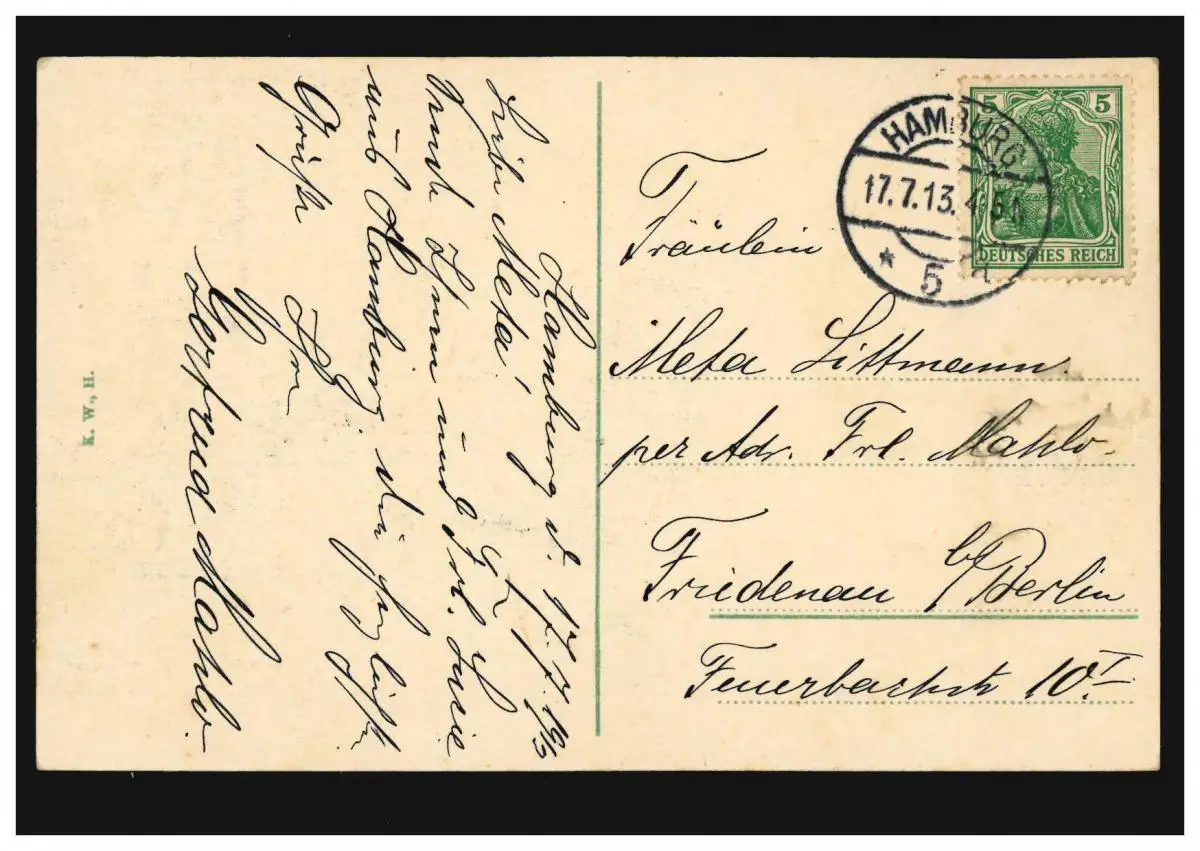 Hamburg d. 17.7.1913
Liebe Meta!
Sende Ihnen und Frl.
aus Hamburg die herzlichsten
Grüße
Ihre
Gertrud Mahlo.
K. W., H.
5 5
DEUTSCHES REICH
HAMBURG
17.7.13. 4-5N
* 5
Fräulein
Meta Littmann
per Adr. Frl. Mahlo.
Friedenau b/Berlin
Feuerbachstr 10 I